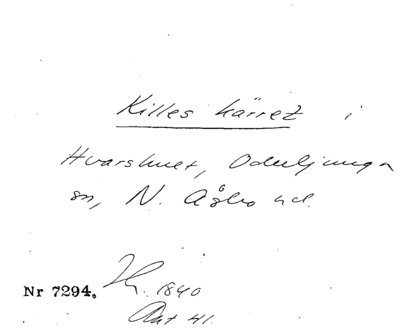 Killes kärret i
Hvarshult, Oderljunga
sn, N. Åsbo hd.
Nr 7294.
1840
Akt 41.